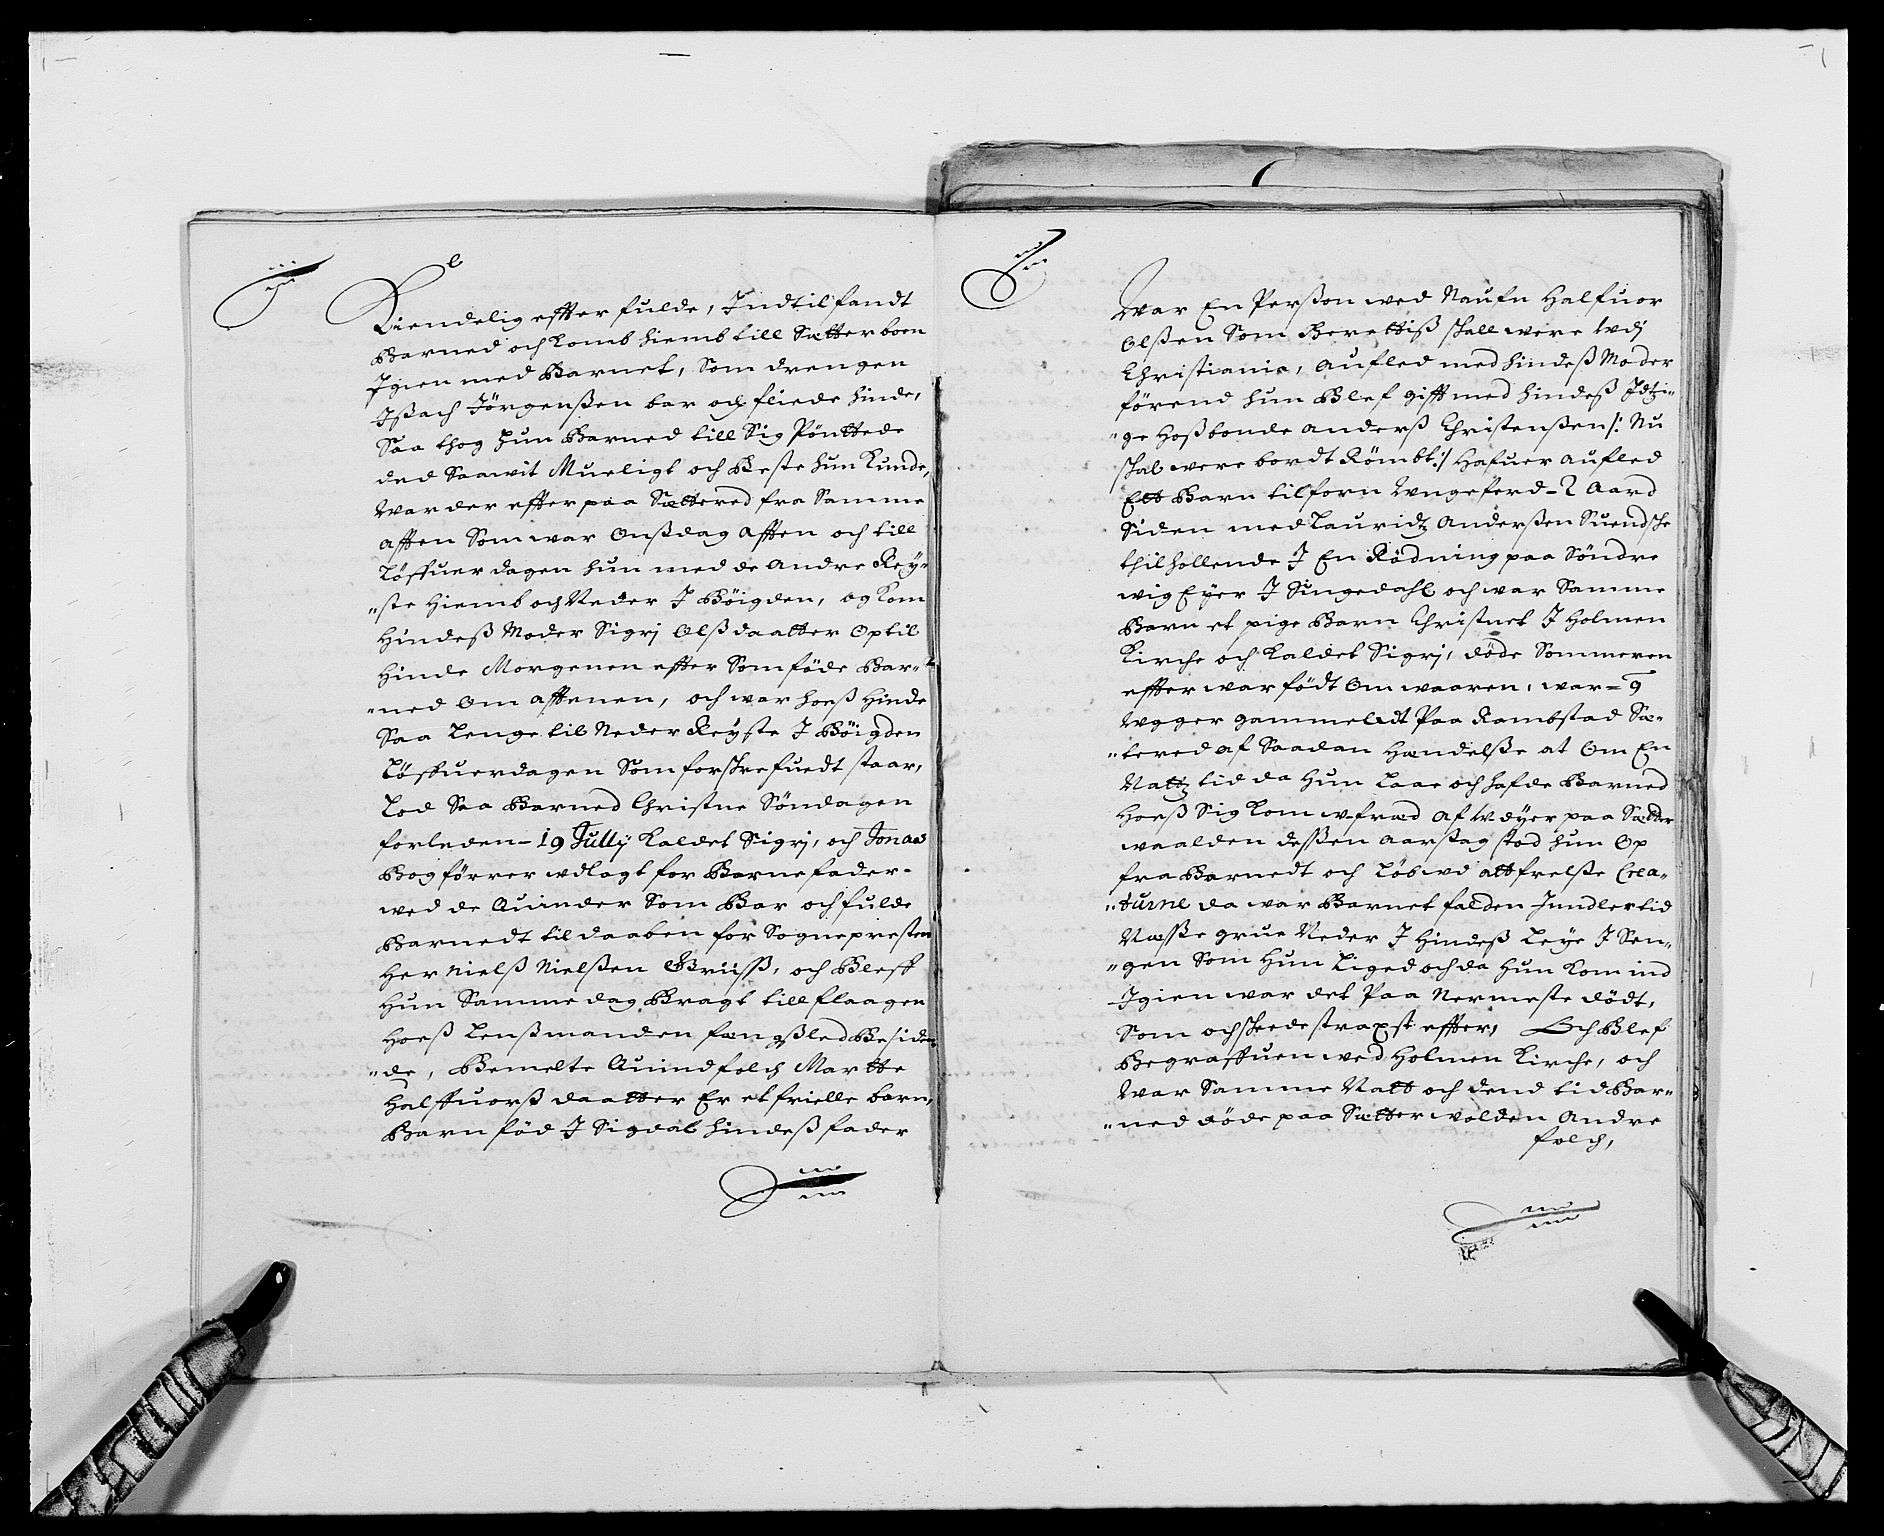 Kiendelig effter fulde, Indtil fandt
Barned och komb hiemb till Sætterboen
Igien med Barnet, Som drengen
Issach Jörgenßen bar och fliede hinde,
Saa thog hun Barned till Sig Pönttede
ded Saawit Mueligt och Beste hun kunde,
War der effter paa Sættered fra Samme
afften Som war Onßdag Afften och till
Löffuerdagen hun med de Andre Rey-
"ste hiemb och Neder I Böigden, og kom
hindeß Moder Sigrj Olßdaatter Optil
hinde Morgenen effter Som föde Bar-
"ned Om afftenen, och war hoeß hinde
Saa lenge til Neder Reyste I Böigden
Löffuerdagen Som forschrefuedt staar,
Lod Saa Barned Christne Söndagen
forleden - 19 Jully kaldet Sigrj, och Jonas
Bogförrer wdlagt for Barnefader -
wed de Quinder Som Bar och fulde
Barnedt til daaben for Sognepresten
Her Nielß Nielßen Brüss, och Bleff
hun Samme dag Bragt till flaagen
hoeß Lenßmanden fængßled Besiden-
"de, Bemelte Quindfolch Martte
Halffuorß daatter Er et frielle barn,
Barn föd I Sigdal hindeß fader
War En Perßon wed Naufn Halfuor
Olßen Som Berettiß schall were wdj
Christiania, Aufled med hindeß Moder
förend hun Blef gifft med hindeß Idtzi-
"ge hoßbonde Anderß Christenßen /: Nu
schal were bordt Römbt :/ Hafuer aufled
Ett Barn tilforn Wngeferd - 2 Aard
Siden med Lauridtz Anderßen Suendsche
thilhollende I En Rödning paa Söndre
wig Eyer I Singedahl och war Samme
Barn et pige Barn Christnet I Holmen
Kirche och kaldet Sigrj, döde Sommeren
effter war födt Om waaren, war = 9
Wger gammeledt Paa Rambstad Sæ-
"tered af Saadan Hændelße at Om En
Nattz tid da hun laae och hafde Barned
hoeß Sig kom wfræd af wdyer paa Sætter
waalden deßßen Aarsag stod hun Op
fra Barnedt och löb wd att frelße Crea-
"turne da war Barnet falden Imidlertid
Næßße grue Neder I hindeß Leye I Sen-
"gen Som hun liged och da hun kom ind
Igien war det Paa Nermeste dödt,
Som och scheede straxst effter, Och Blef
Begraffuen wed Holmen Kirche, och
War Samme Natt och dend tid Bar-
"ned döde paa Sætterwolden Andre
folch,